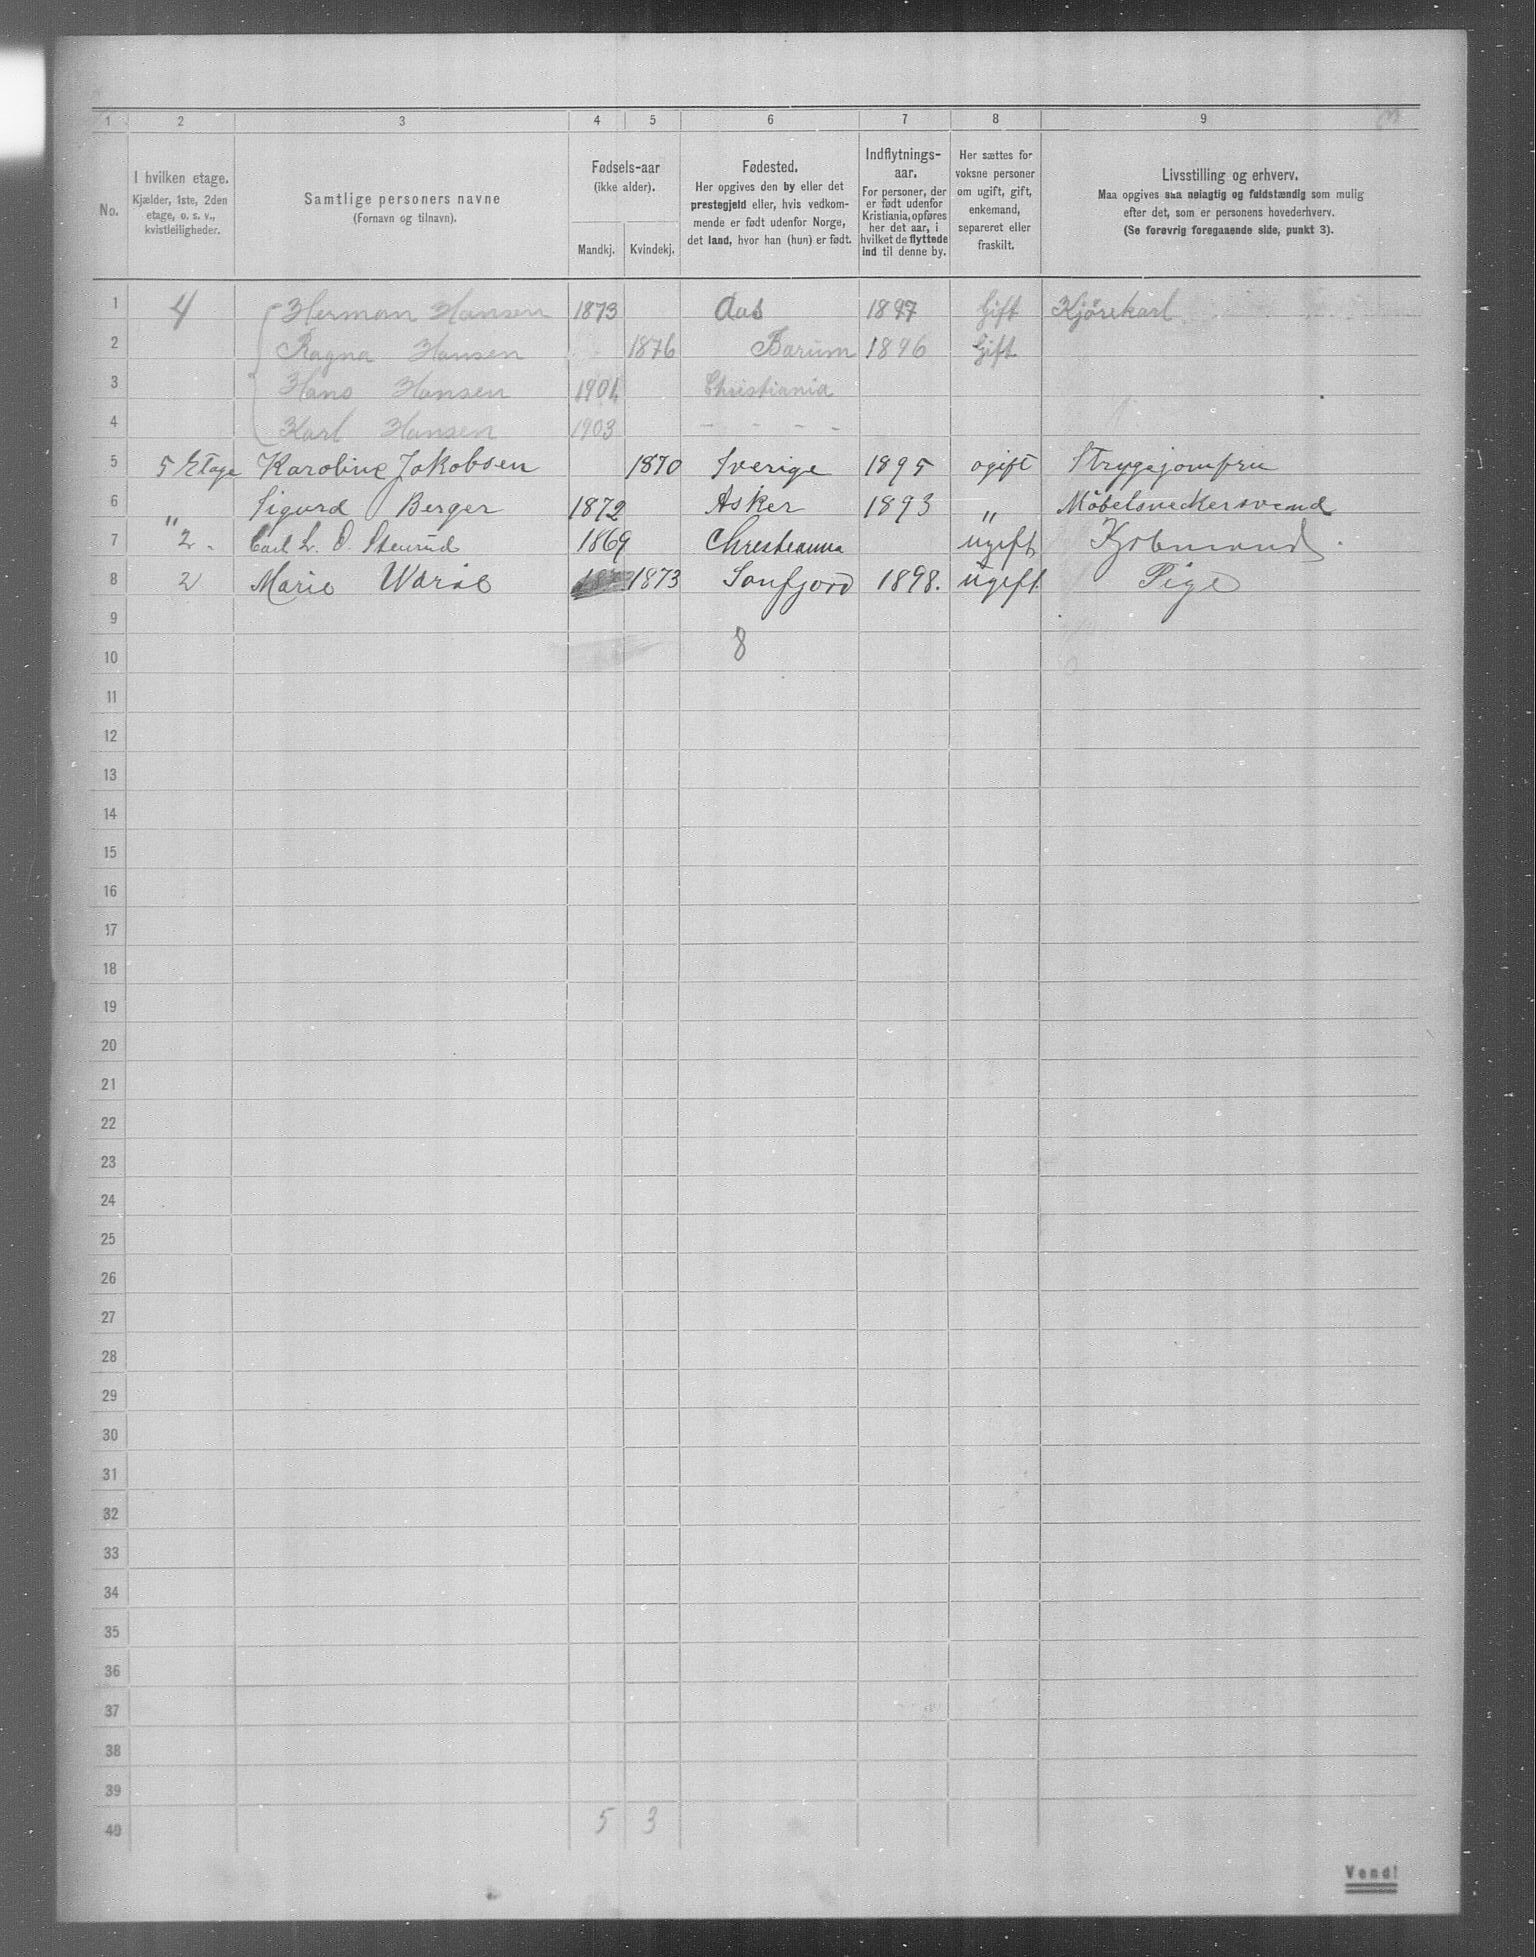 1 2 3 4 5 6 7 8 9
No.
I hvilken etage.
Kjælder, 1ste, 2den
etage, o. s. v.,
kvistleiligheder.
Samtlige personers navne
(Fornavn og tilnavn).
Fødsels-aar
(ikke alder).
Mandkj. Kvindekj.
Fødested.
Her opgives den by eller det
prestegjeld eller, hvis vedkom-
mende er født udenfor Norge,
det land, hvor han (hun) er født.
Indflytnings-
aar.
For personer, der
er født udenfor
Kristiania, opføres
her det aar, i
hvilket de flyttede
ind til denne by.
Her sættes for
voksne personer
om ugift, gift,
enkemand,
separeret eller
fraskilt.
Livsstilling og erhverv.
Maa opgives saa nøiagtig og fuldstændig som mulig
efter det, som er personens hovederhverv.
(Se forøvrig foregaaende side, punkt 3).
1 4 Herman Hansen 1873 Aas 1897 Gift Kjørekarl
2 Ragna Hansen 1876 Barum 1896 Gift
3 Hans Hansen 1901 Christiania
4 Karl Hansen 1903 - - - -
5 5 Etage Karoline Jakobsen 1870 Sverige 1895 ogift Strygejomfru
6 " Sigurd Berger 1872 Asker 1893 " Møbelsnedkersvend
7 2. Carl L. O. Stenrud 1869 Christiania ugift Kjøbmand.
8 2 Marie 1873 Sønfjord 1898. ugift Pige
9
10 8
11
12
13
14
15
16
17
18
19
20
21
22
23
24
25
26
27
28
29
30
31
32
33
34
35
36
37
38
39
40 5 3
Vend!